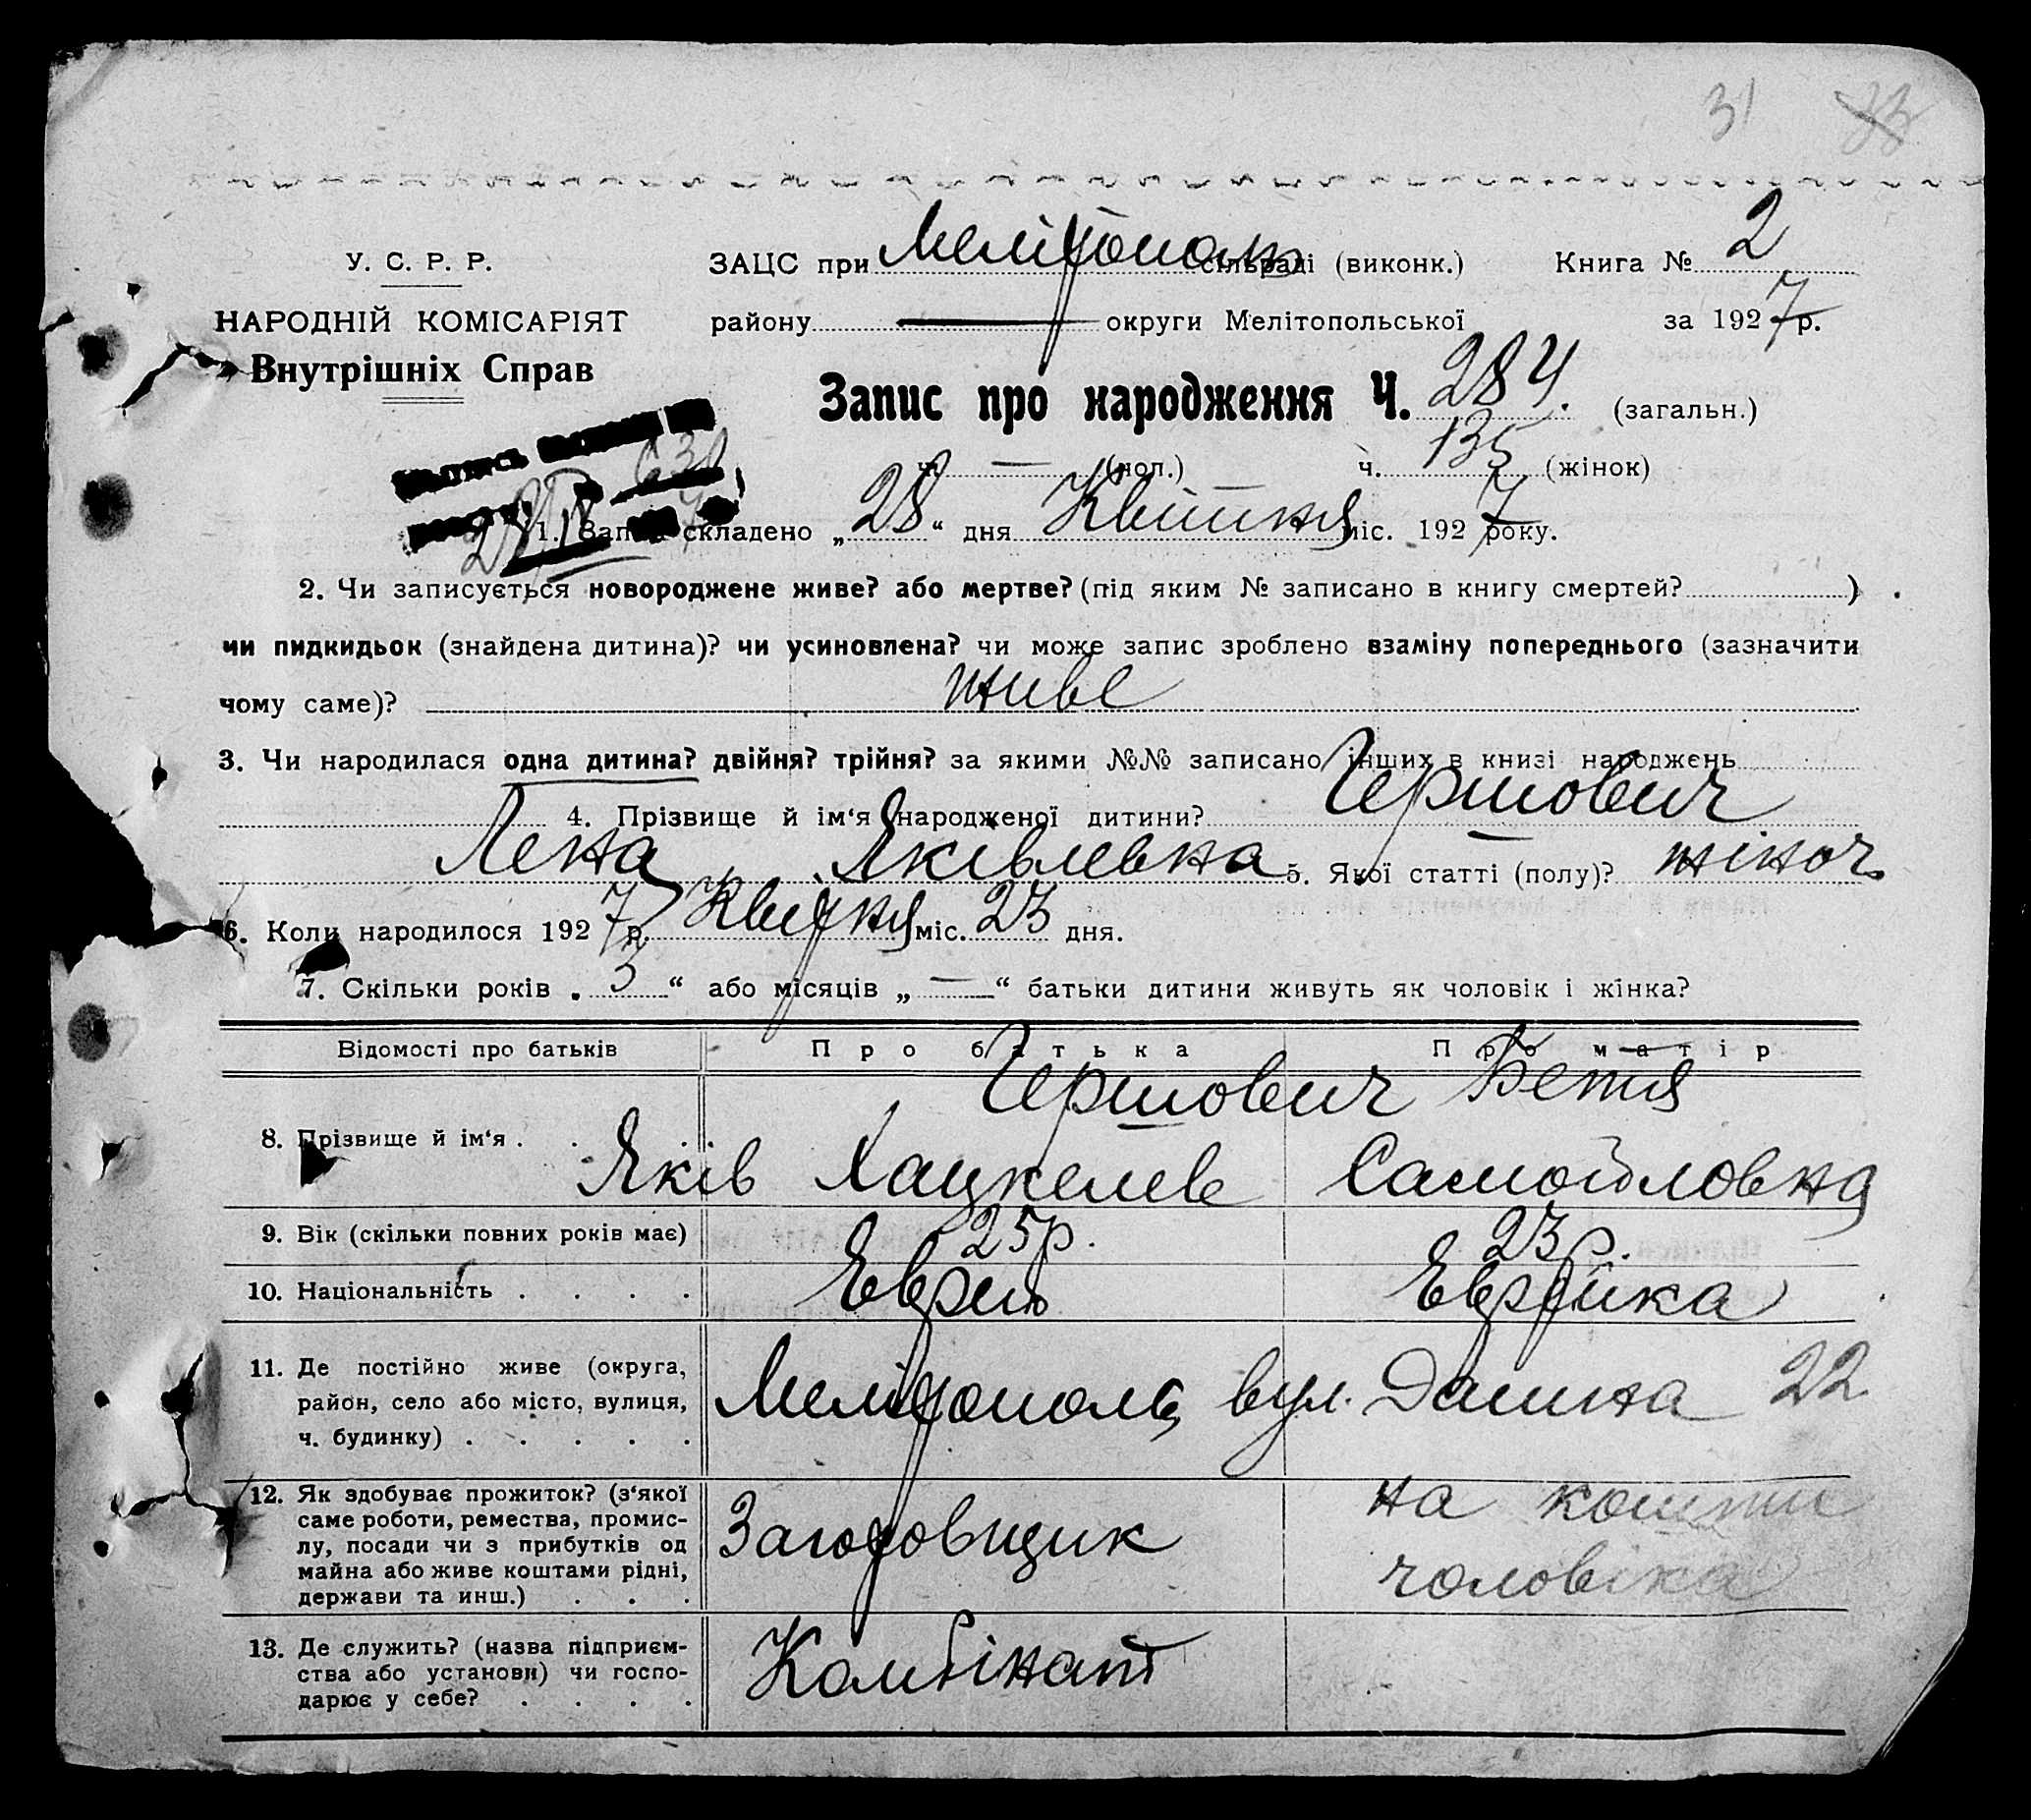 31 33
У. С. Р. Р. ЗАЦС при Мелітополь сільраді (виконк.) Книга № 2
НАРОДНІЙ КОМІСАРІЯТ району — округи Мелітопольської за 1927 р.
Внутрішніх Справ
Запис про народження Ч. 284. (загальн.)
ч. — (чол.) ч. 135 (жінок)
1. Запис складено „28“ дня Квітня міс. 1927 року.
2. Чи записується новороджене живе? або мертве? (під яким № записано в книгу смертей? )
чи пидкидьок (знайдена дитина)? чи усиновлена? чи може запис зроблено взаміну попереднього (зазначити
чому саме)? живе
3. Чи народилася одна дитина? двійня? трійня? за якими №№ записано інших в книзі народжень
4. Прізвище й ім‘я народженої дитини? Гершович
Лена Яківлевна 5. Якої статті (полу)? жіноч.
6. Коли народилося 1927 р. Квітня міс. 23 дня.
7. Скільки років „3“ або місяців „—“ батьки дитини живуть як чоловік і жінка?
Відомості про батьків Про батька Про матір
Гершович Бетя
8. Прізвище й ім‘я . Яків Хацкелев Самойловна
9. Вік (скільки повних років має) 25 р. 23 р.
10. Національність . . . . Еврей Еврейка
11. Де постійно живе (округа,
район, село або місто, вулиця, Мелітополь, вул. Дашна 22
ч. будинку) . . . . .
12. Як здобуває прожиток? (з‘якої на кошти
саме роботи, ремества, промис-
лу, посади чи з прибутків од Заготовщик
майна або живе коштами рідні, чоловіка
держави та инш.) . . .
13. Де служить? (назва підприєм-
ства або установи) чи госпо- Комбінат
дарює у себе? . . . .